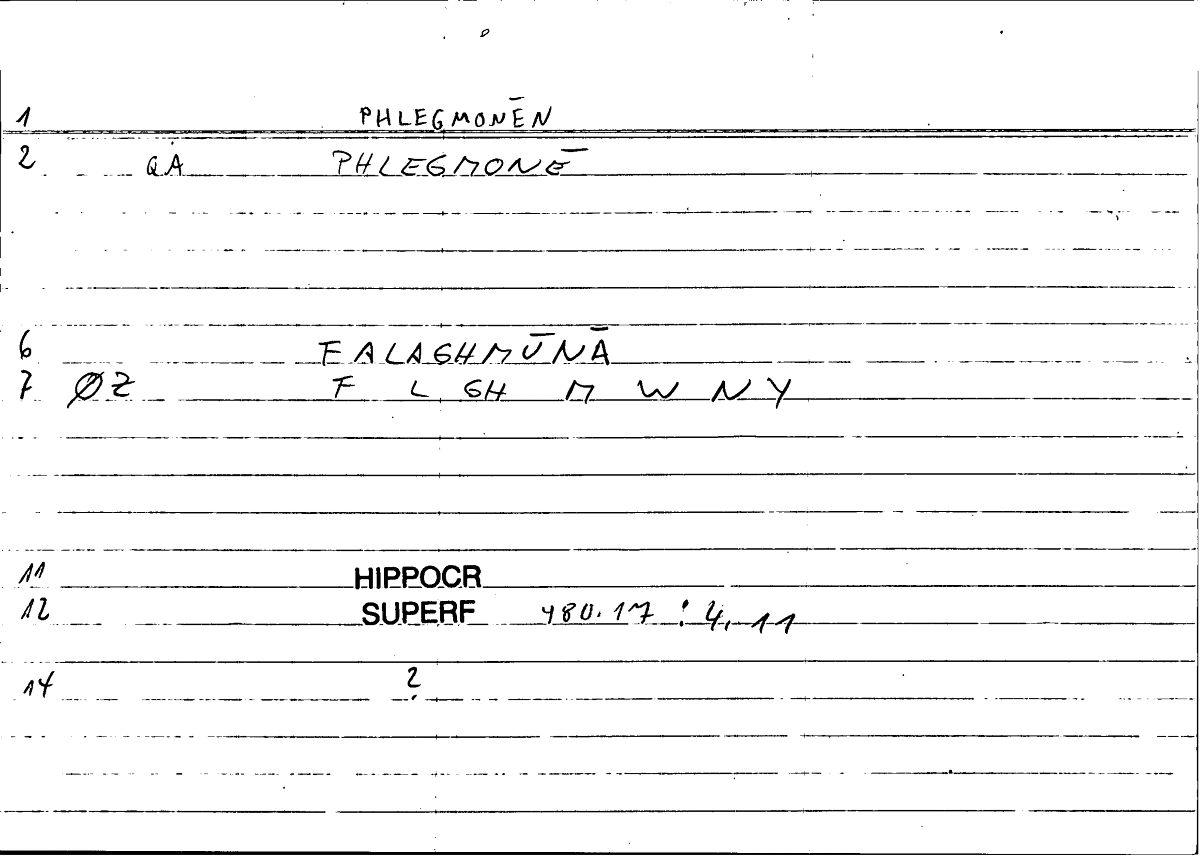 1 PHLEGMONĒN
2 QA PHLEGMONĒ
6 FALAGHMŪNĀ
7 ØZ F L GH M W N Y
11 HIPPOCR
12 SUPERF 480.17 : 4, 11
14 ?